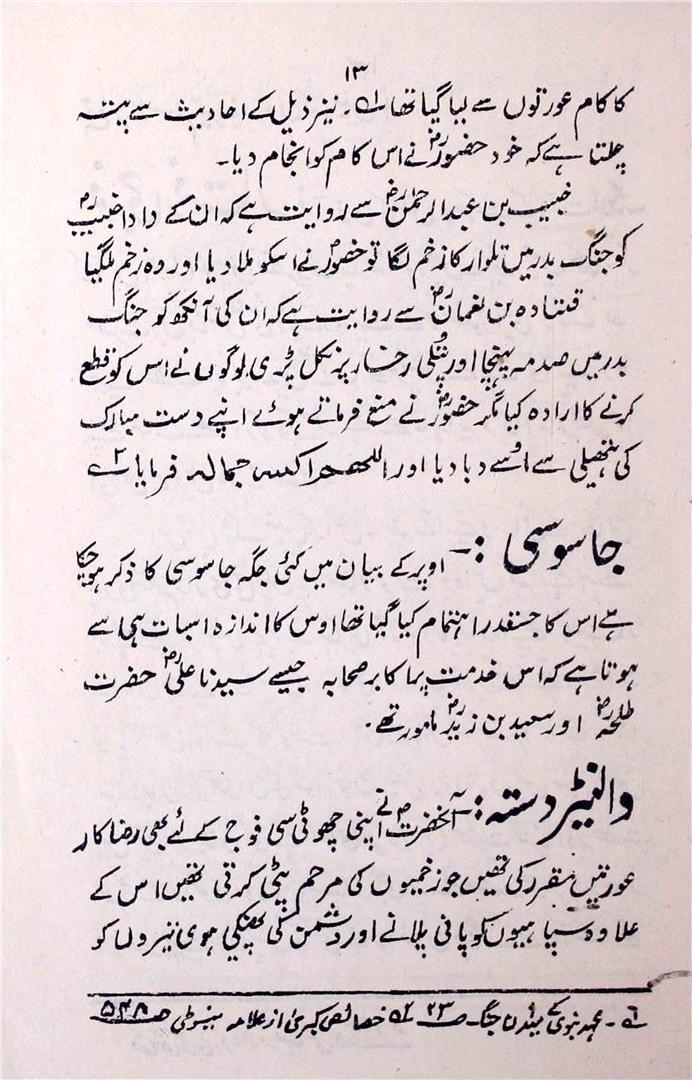 ۱۳
کا کام عورتوں سے لیا گیا تھا ۱ے۔ نیز ذیل کے احادیث سے پتہ
چلتا ہے کہ خود حضورؐ نے اس کام کو انجام دیا۔
خبیب بن عبدالرحمٰنؓ سے روایت ہے کہ ان کے دادا خبیبؓ
کو جنگ بدر میں تلوار کا زخم لگا تو حضورؐ نے اسکو ملا دیا اور وہ زخم ملگیا
قتادہ بن نعمانؓ سے روایت ہے کہ ان کی آنکھ کو جنگ
بدر میں صدمہ پہنچا اور پتلی رخسار پر نکل پڑی لوگوں نے اس کو قطع
کرنے کا ارادہ کیا مگر حضورؐ نے منع فرماتے ہوئے اپنے دست مبارک
کی ہتھیلی سے اوسے دبا دیا اور اللھم اکسہ جمالہ فرمایا ۲ے
جاسوسی :- اوپر کے بیان میں کئی جگہ جاسوسی کا ذکر ہوچکا
ہے اس کا جسقدر اہتمام کیا گیا تھا اوس کا اندازہ اسبات ہی سے
ہوتا ہے کہ اس خدمت پر اکابر صحابہ جیسے سیدنا علیؓ حضرت
طلحہؓ اور سعید بن زیدؓ مامور تھے۔
والنٹیر دستہ :- آنحضرتؐ نے اپنی چھوٹی سی فوج کے لئے بھی رضاکار
عورتیں مقرر کی تھیں جو زخمیوں کی مرحم پٹی کرتی تھیں اس کے
علاوہ سپاہیوں کو پانی پلانے اور دشمن کی پھینکی ہوی تیروں کو
۱ے۔ عہد نبوی کے میدان جنگ صـ ۲۳ ۲ے خصائص کبریٰ از علامہ سیوطی صـ ۵۴۸